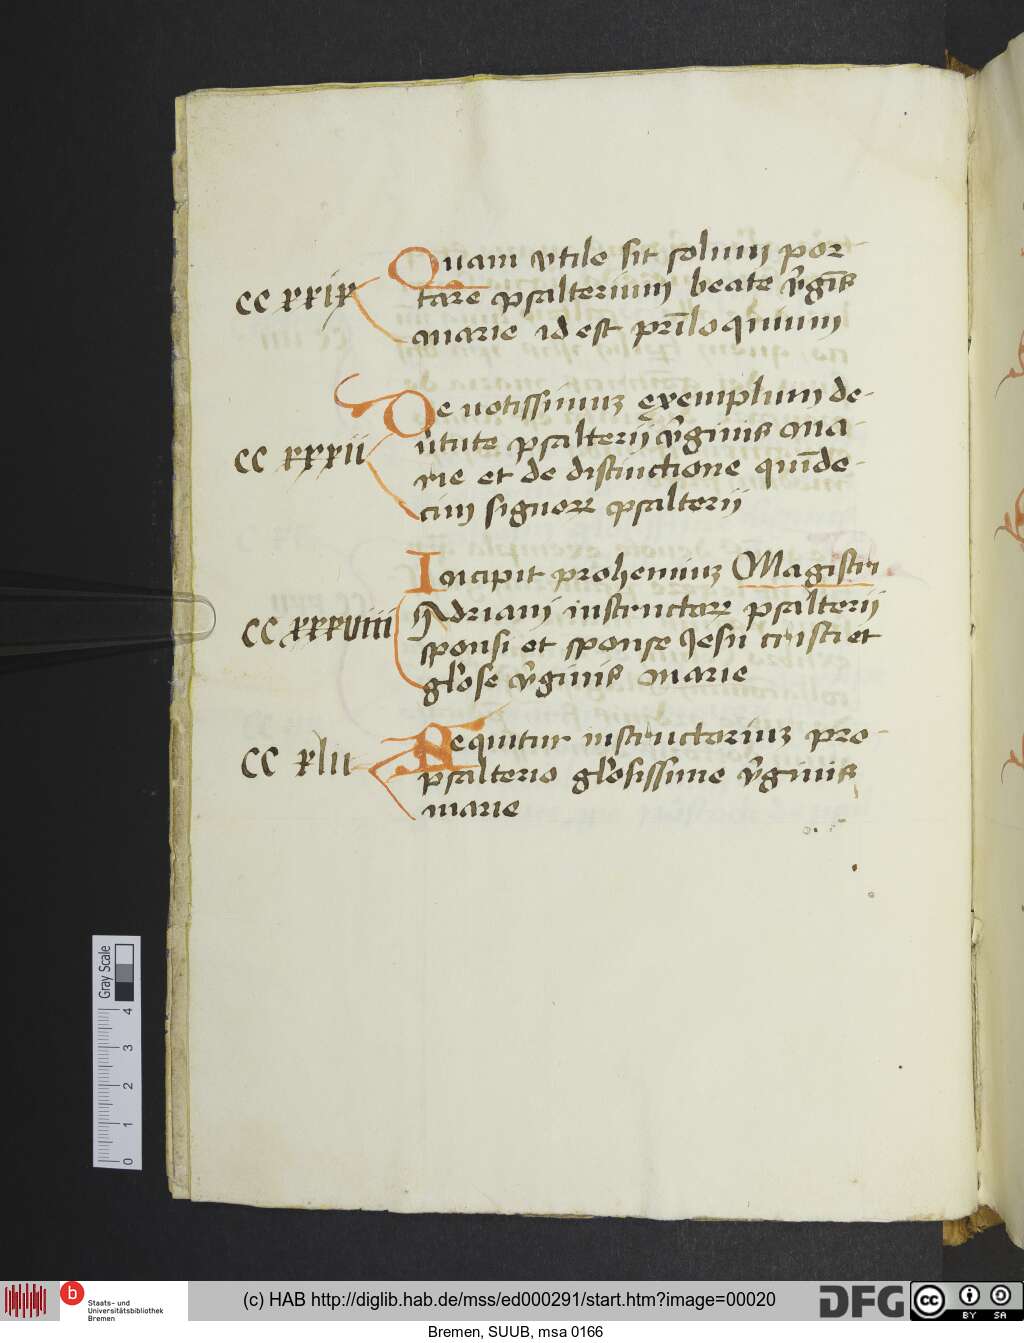 CC xxix
Quam vtile sit solum por-
tare psalterium beate v̄gīs
marie id est prīloquium
CC xxxii
De notissimuz exemplum de
v̄tute psalterij v̄ginis ma-
rie et de distinctione quīde-
cim signorꝝ psalterij
CC xxxviiii
Incipit prohemiuz Magistri
Adriani instructorꝝ psalterij
sponsi et sponse Jesu cristi et
gl̄ose v̄ginis marie
CC xlii
Sequitur instructoriuz pro-
psalterio gl̄osissime v̄ginis
marie
Gray Scale
4
3
2
1
0
b
Staats- und
Universitätsbibliothek
Bremen
(c) HAB http://diglib.hab.de/mss/ed000291/start.htm?image=00020
DFG
cc
BY SA
Bremen, SUUB, msa 0166